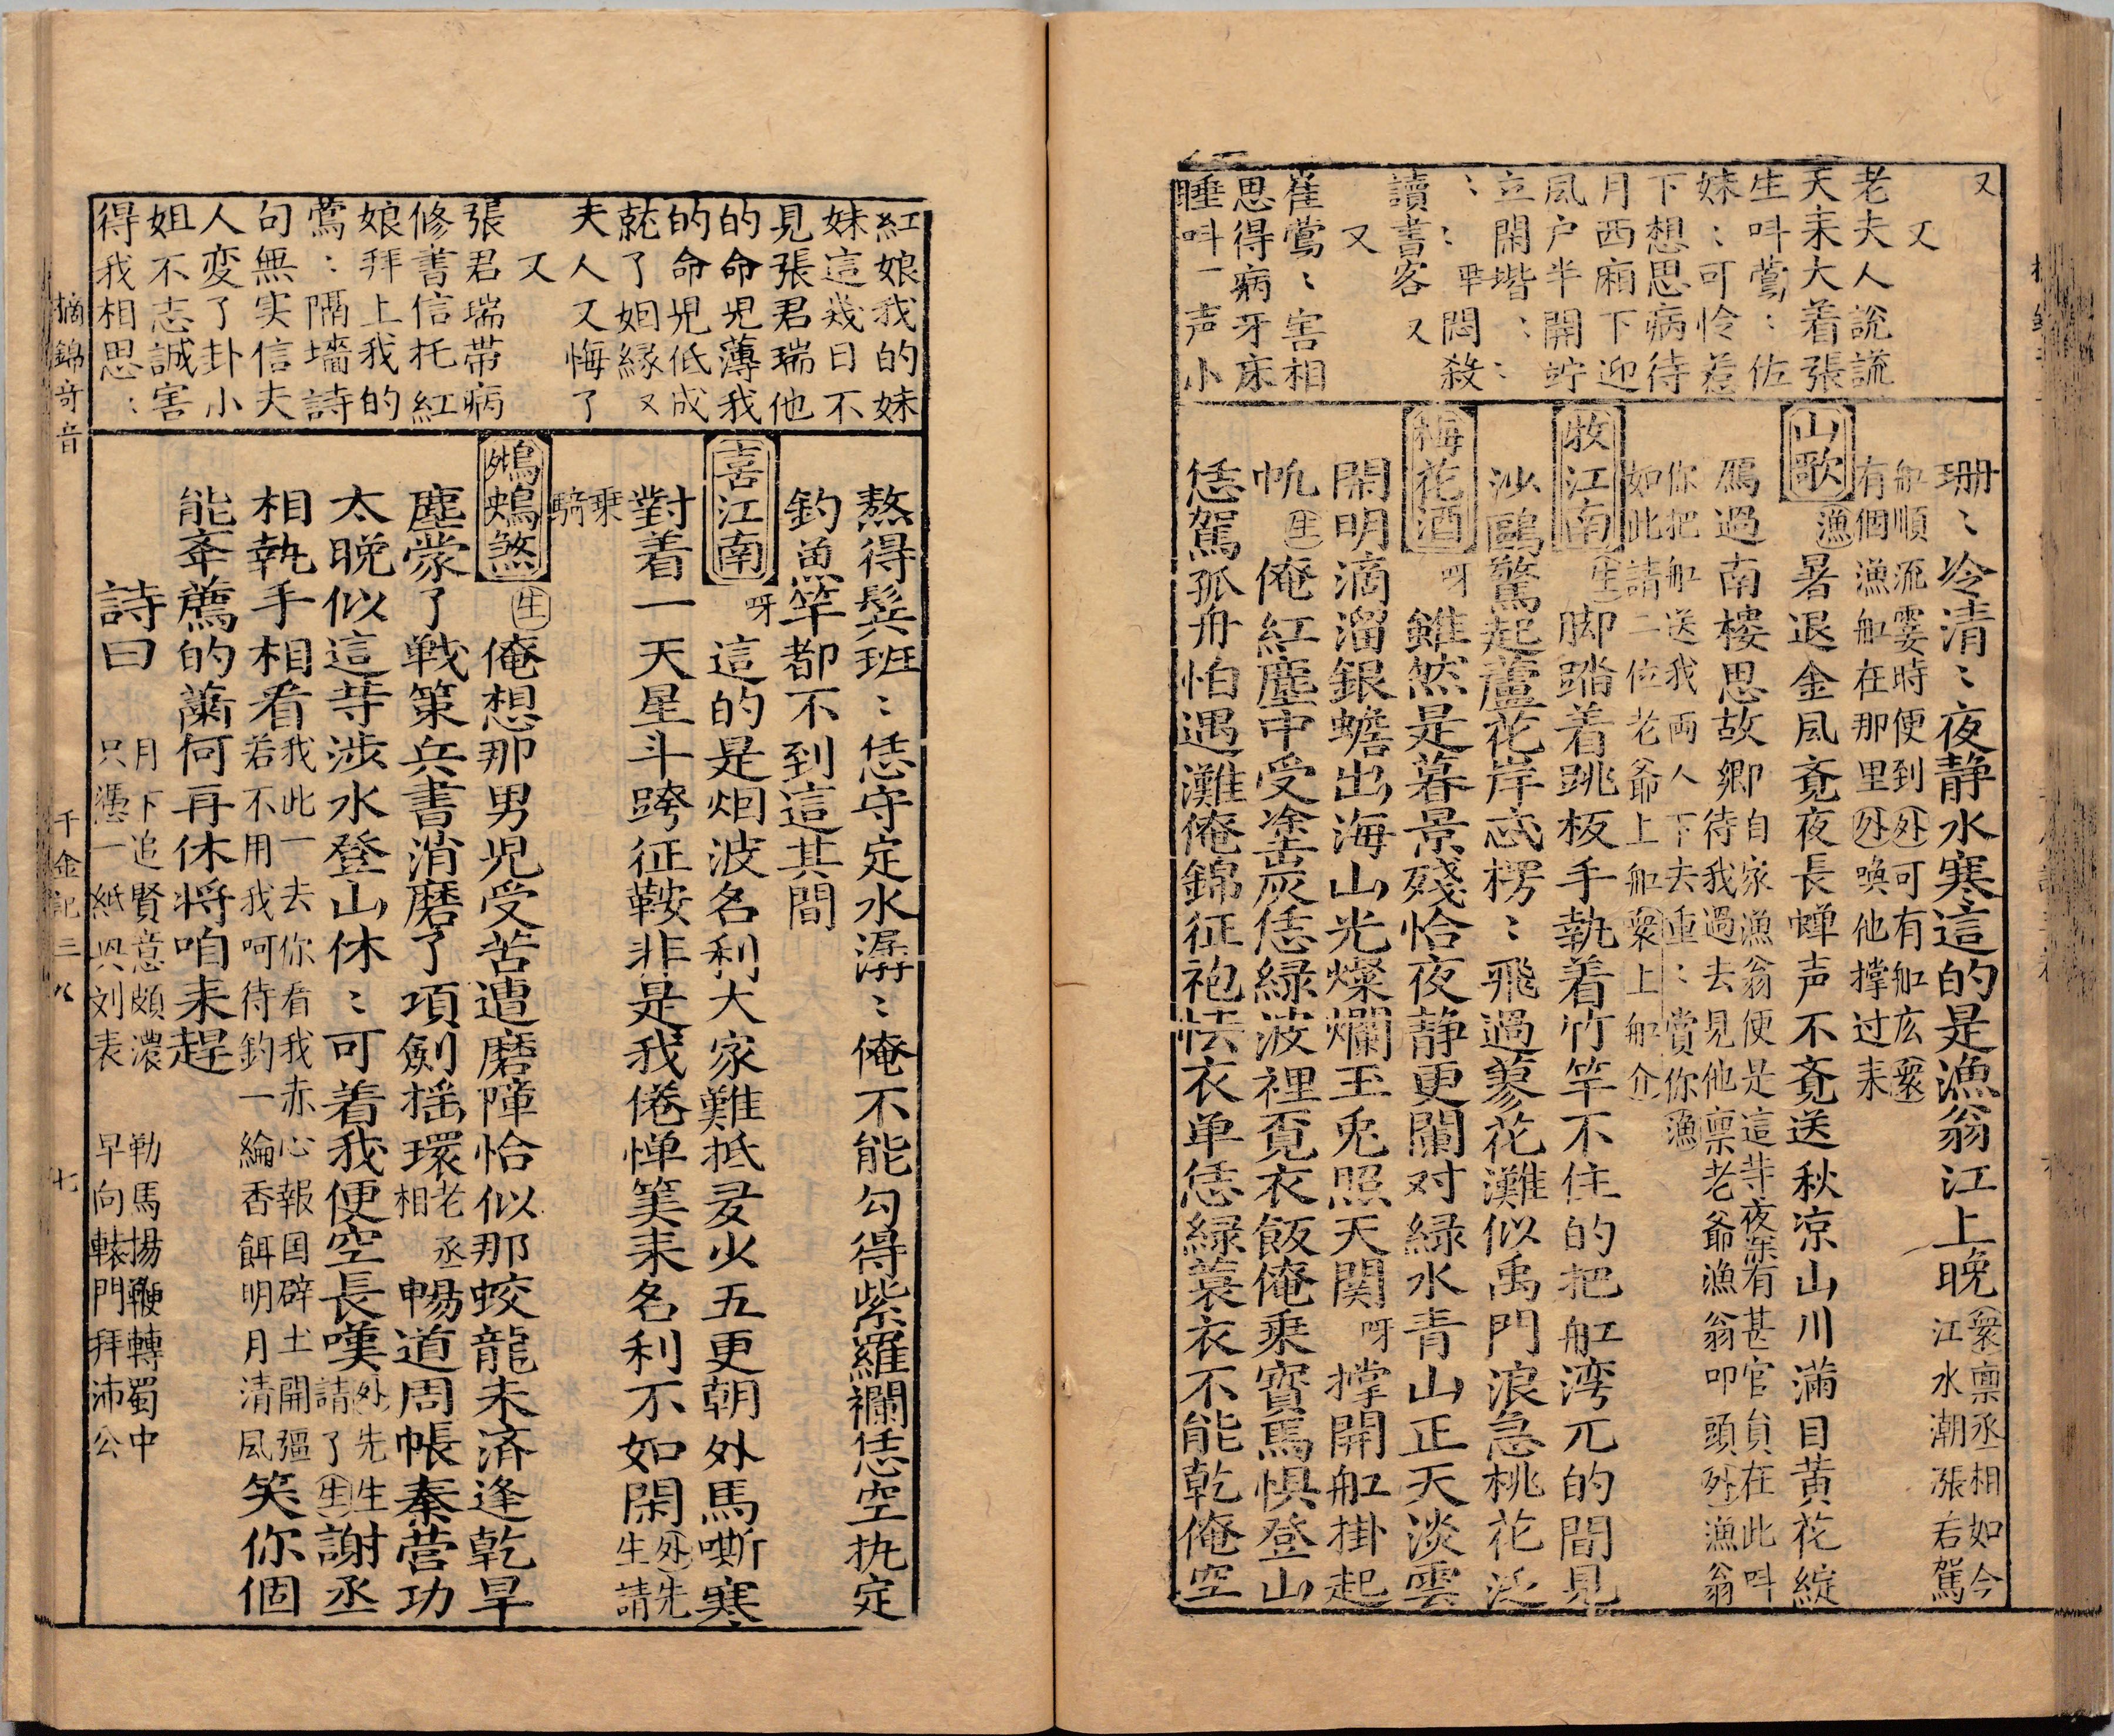 又
又
老夫人說謊
天来大着張
生呌鶯：佐
妹：可怜惹
下想思病待
月西廂下迎
風户半開竚
立閑堦：：
：：畢悶殺
讀書客 又
又
崔鶯：害相
思得病牙床
睡呌一声小
珊：冷清：夜静水寒這的是漁翁江上晚
衆禀丞相如今
江水潮漲右駕
船順流霎時便到外可有船広衆
有個漁船在那里外喚他撑过来
山歌 漁 暑退金風竟夜長蝉声不竟送秋凉山川滿目黄花綻
鴈過南樓思故鄉
自家漁翁便是這䒭夜深有甚官負在此呌
待我過去見他禀老爺漁翁叩頭外漁翁
你把船送我両人下去重：賞你漁
如此請二位老爺上船衆上船介
牧江南 生 脚踏着跳板手執着竹竿不住的把船湾兀的間見
沙鷗驚起蘆花岸忒楞：飛過蓼花灘似禹門浪急桃花泛
梅花酒 呀 雖然是暮景殘恰夜静更闌对緑水青山正天淡雲
閑明滴溜銀蟾出海山光燦爛玉兎照天関呀撑開船掛起
帆 生 俺紅塵中受塗炭恁緑波裡覓衣飯俺乗寳馬惧登山
恁駕孤舟怕遇灘俺錦征袍怯衣单恁緑蓑衣不能乾俺空
紅娘我的妹
妹這幾日不
見張君瑞他
的命児薄我
的命児低成
就了姻緣 又
夫人又悔了
又
張君瑞帶病
修書信托紅
娘拜上我的
鶯：隔墻詩
句無实信夫
人変了卦小
姐不志誠害
得我相思：
熬得髩班：恁守定水潺：俺不能勾得紫羅襴恁空执定
釣魚竿都不到這其間
喜江南 呀 這的是烟波名利大家難抵㚐火五更朝外馬嘶寒
對着一天星斗跨征鞍非是我倦惮筭来名利不如閑
外先
生請
乗
騎
鴣鴂煞 生 俺想那男児受苦遭磨障恰似那蛟龍未済逢乾旱
塵蒙了戦策兵書消磨了項劍揺環老丞相暢道周帳秦营功
太晚似這䒭涉水登山休：可着我便空長嘆
外先生
請了生
謝丞
相執手相看
我此一去你看我赤心報国辟土開疆
若不用我呵待釣一綸香餌明月清風
笑你個
能㪯薦的蕭何再休将咱来趕
詩曰
月下追賢意頗濃 勒馬揚鞭轉蜀中
只憑一紙興刘表 早向轅門拜沛公
摘錦奇音
千金記三八
七